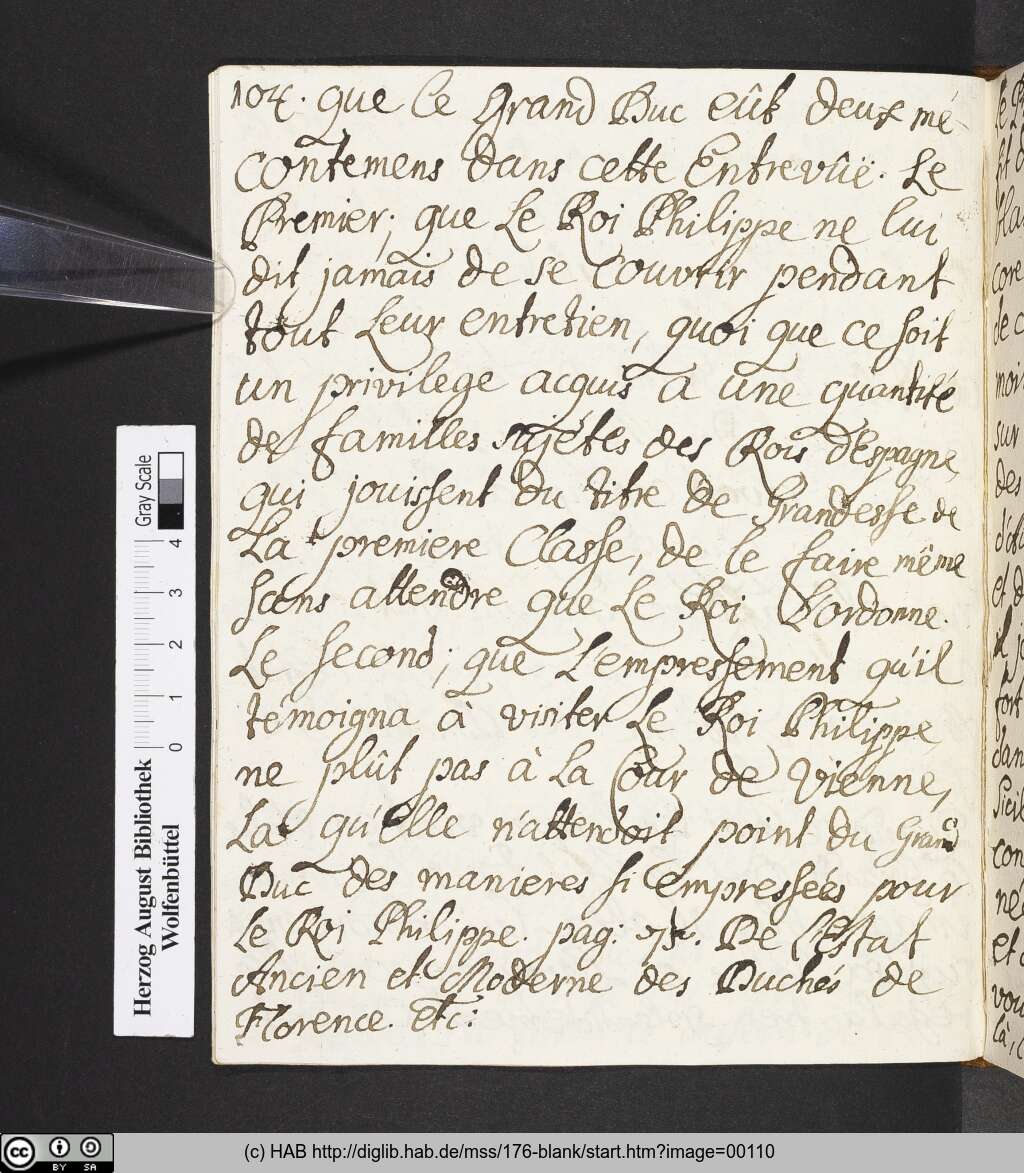 104. que le Grand Duc eût deux mé-
contemens dans cette Entrevûë. Le
Premier; que Le Roi Philippe ne lui
dit jamais de se couvrir pendant
tout Leur entretien, quoi que ce soit
un privilege acquis a une quantité
de familles sujétes des Rois d'Espagne,
qui jouissent du titre de Grandesse de
La premiere Classe, de le faire même
sans attendre que Le Roi L'ordonne.
Le second; que L'empressement qu'il
témoigna à visiter Le Roi Philippe
ne plût pas à La Cour de Vienne,
La qu'elle n'attendoit point du Grand
Duc des manieres si empressées pour
Le Roi Philippe. pag: De L'Estat
Ancien et Moderne des Duchés de
Florence. etc:
Herzog August Bibliothek
Wolfenbüttel
Gray Scale
0 1 2 3 4
cc BY SA
(c) HAB http://diglib.hab.de/mss/176-blank/start.htm?image=00110